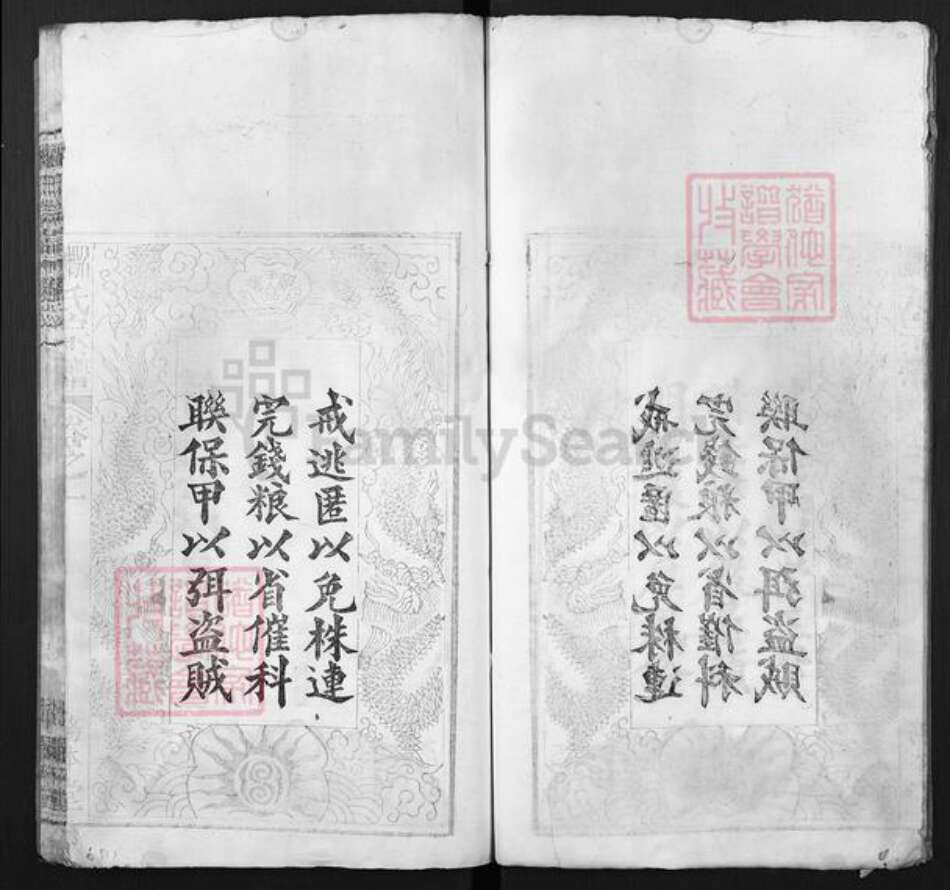 戒逃匿以免株連
完錢粮以省催科
聯保甲以弭盜賊
FamilySearch